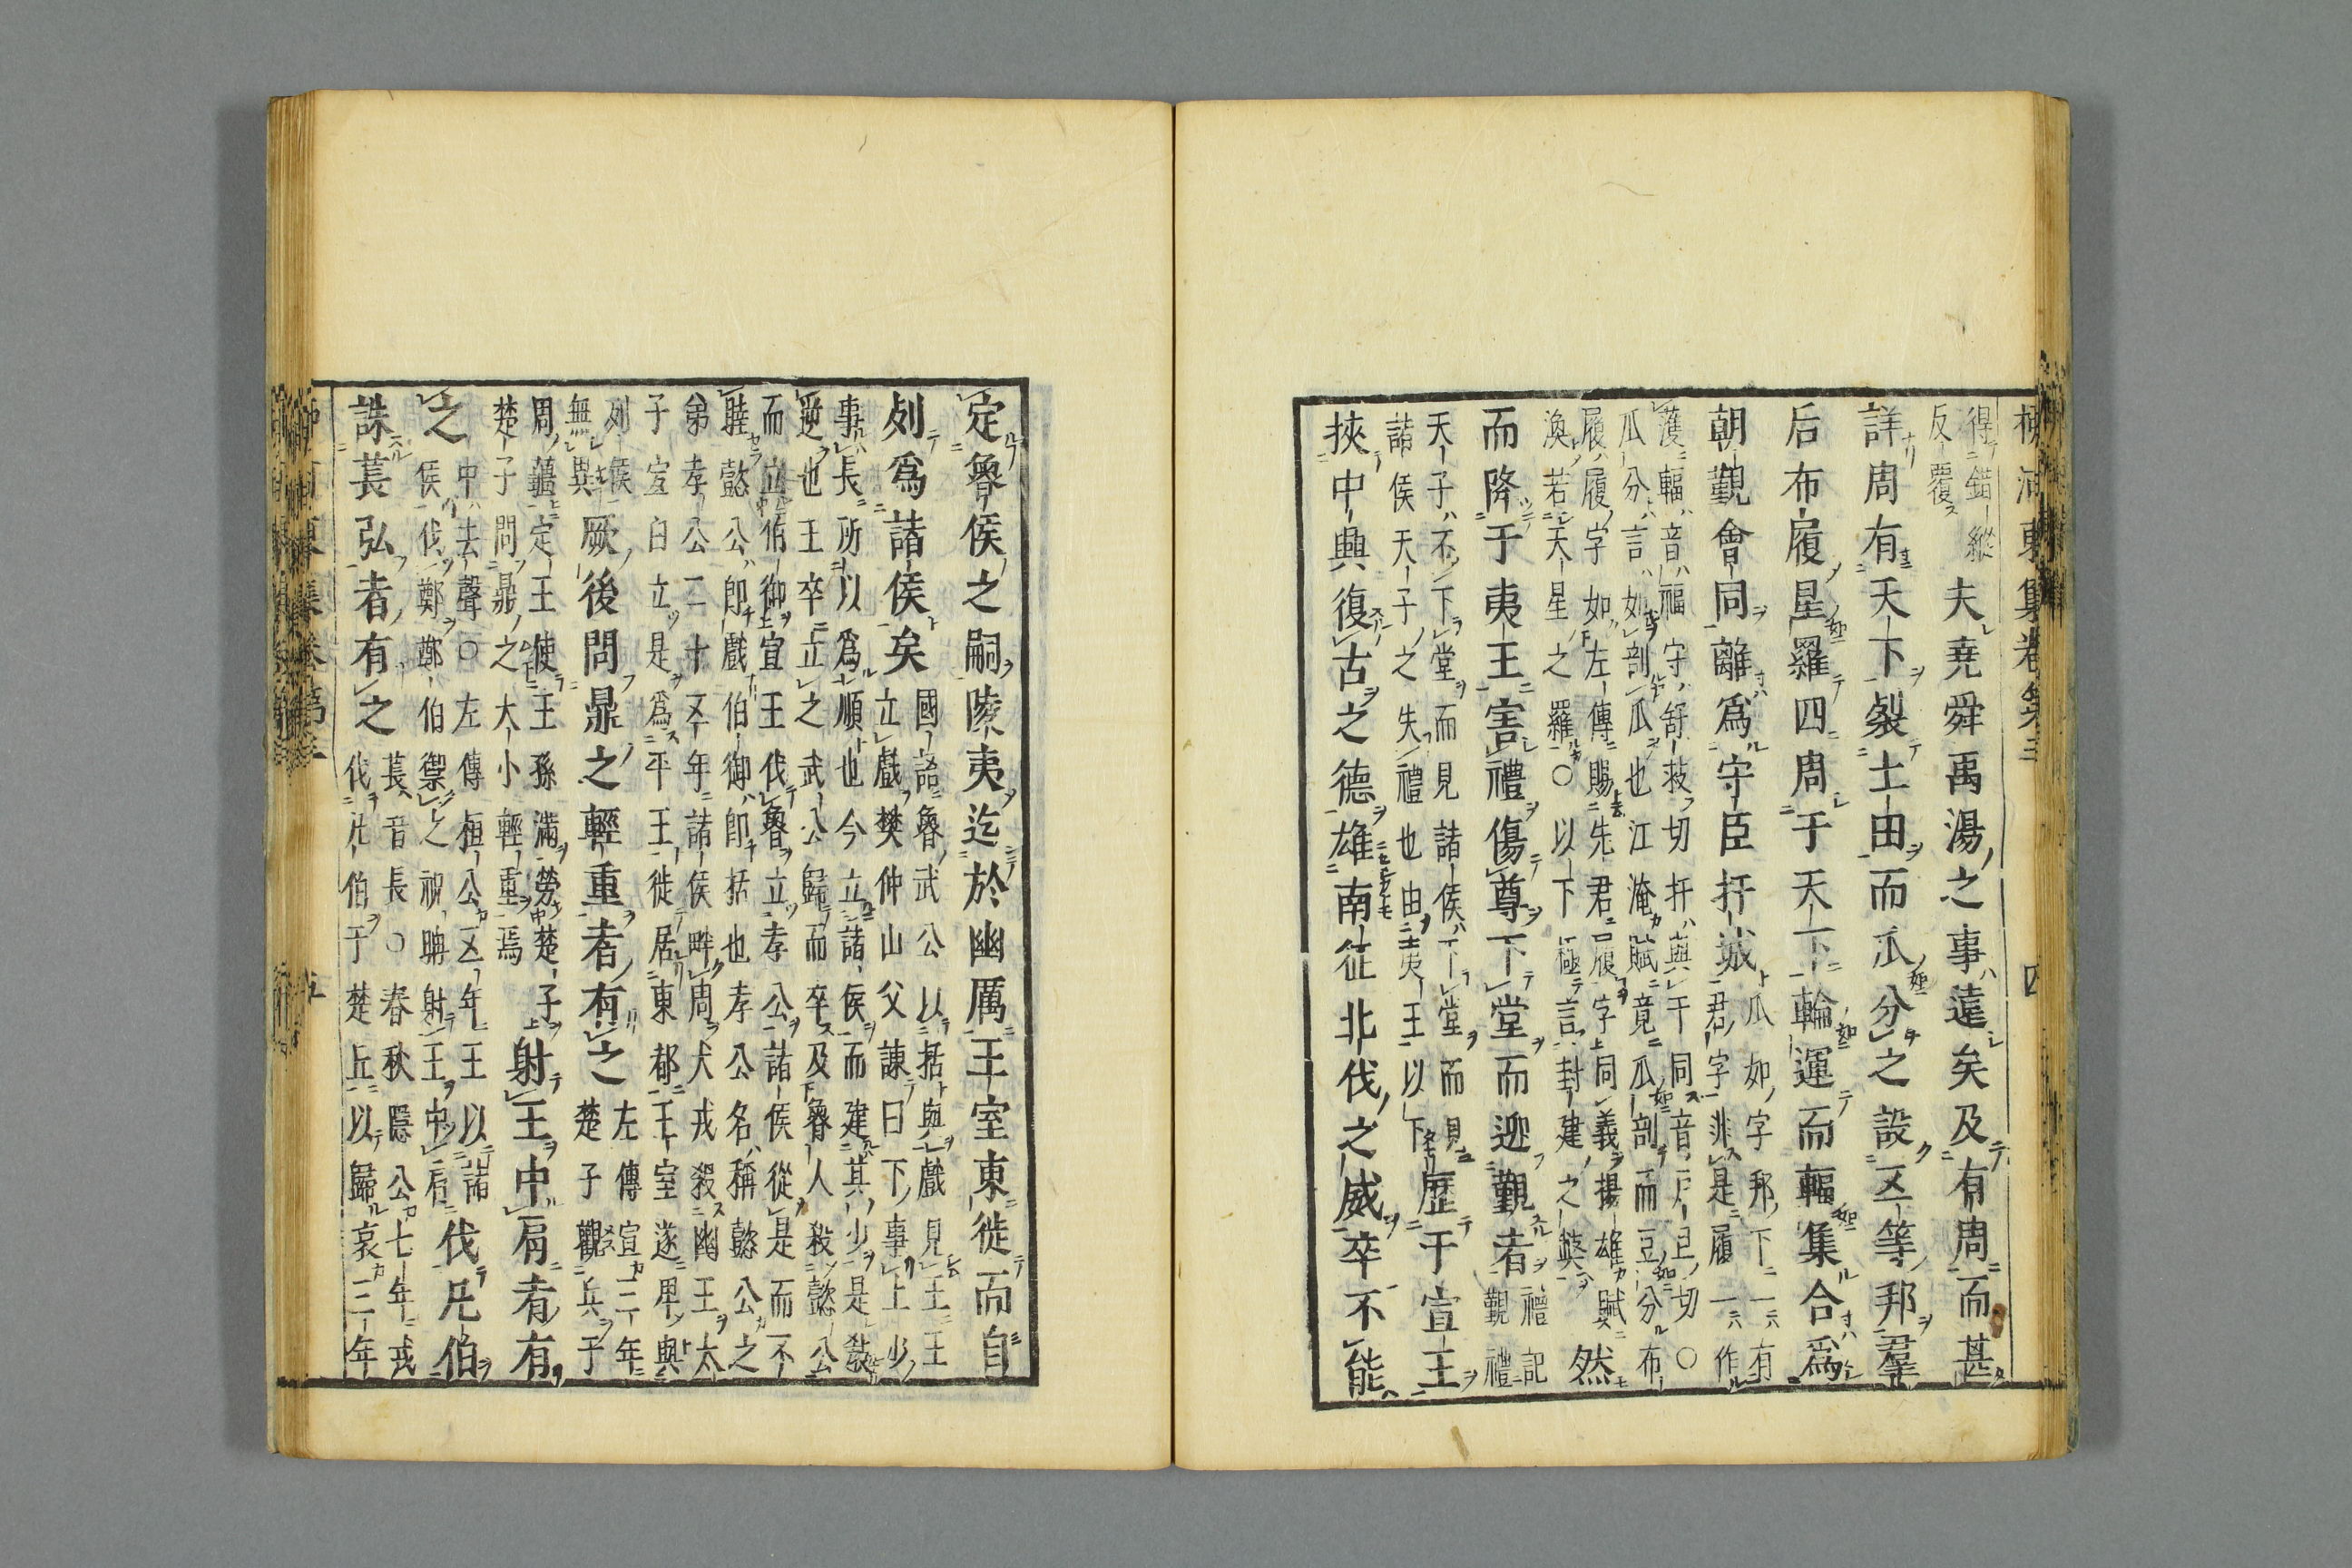 柳河東集卷第三 四
得錯縱
反覆
夫堯舜禹湯之事遠矣及有周而甚
詳周有天下裂土田而瓜分之設五等邦羣
后布履星羅四周于天下輪運而輻集合爲
朝覲會同離爲守臣扞城
瓜如字邦下一有
君字非是履一作
濩輻音福守舒救切扞與干同音戶旦切○
瓜分言如剖瓜也江淹賦竟瓜剖而豆分布
履履字如左傳賜先君履字同義揚雄賦
渙若天星之羅○以下極言封建之弊
然
而降于夷王害禮傷尊下堂而迎覲者
禮記
覲禮
天子不下堂而見諸侯下堂而見
諸侯天子之失禮也由夷王以下
歷于宣王
挾中興復古之德雄南征北伐之威卒不能
定魯侯之嗣陵夷迄於幽厲王室東徙而自
列爲諸侯矣
國語魯武公以括與戲見王王
立戲樊仲山父諫曰下事上少
事長所以爲順也今立諸侯而建其少是敎
逆也王卒立之武公歸而卒及魯人殺懿公
而立伯御宣王伐魯立孝公諸侯從是而不
睦懿公卽戲伯御卽括也孝公名稱懿公之
弟孝公二十五年諸侯畔周犬戎殺幽王太
子宜臼立是爲平王徙居東都王室遂卑與
列侯
無異
厥後問鼎之輕重者有之
左傳宣三年
楚子觀兵于
周疆定王使王孫滿勞楚子
楚子問鼎之大小輕重焉
射王中肩者有
之
中去聲○左傳桓公五年王以諸
侯伐鄭鄭伯禦之祝聃射王中肩
伐凡伯
誅萇弘者有之
萇音長○春秋隱公七年戎
伐凡伯于楚丘以歸哀三年